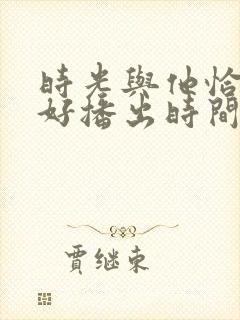 時光與他恰
好播出時間
賈继東